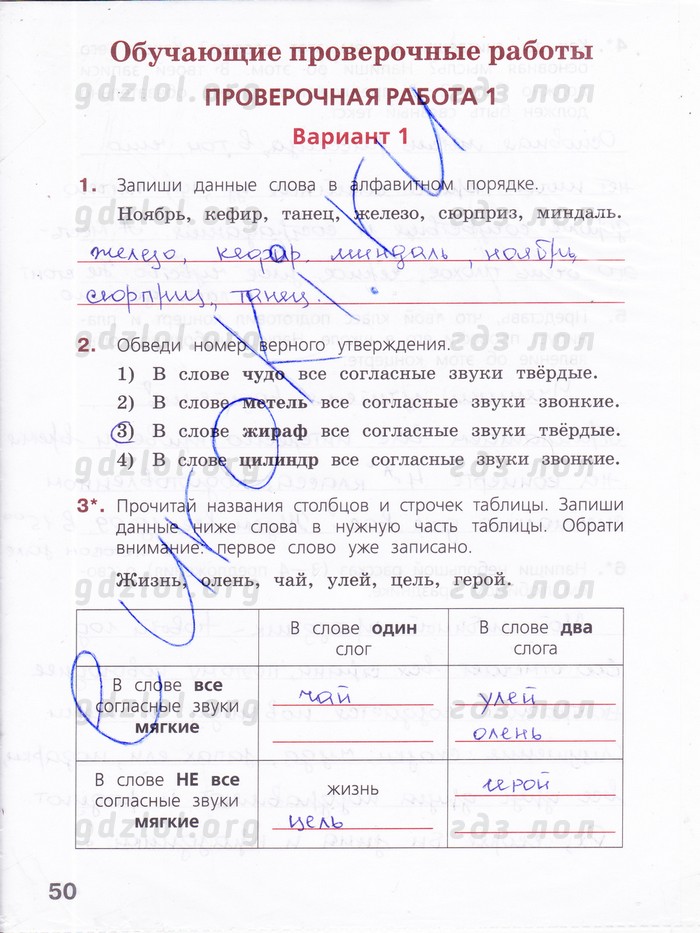 Обучающие проверочные работы
ПРОВЕРОЧНАЯ РАБОТА 1
Вариант 1
1. Запиши данные слова в алфавитном порядке.
Ноябрь, кефир, танец, железо, сюрприз, миндаль.
железо, кефир, миндаль, ноябрь,
сюрприз, танец.
2. Обведи номер верного утверждения.
1) В слове чудо все согласные звуки твёрдые.
2) В слове метель все согласные звуки звонкие.
3) В слове жираф все согласные звуки твёрдые.
4) В слове цилиндр все согласные звуки звонкие.
3*. Прочитай названия столбцов и строчек таблицы. Запиши
данные ниже слова в нужную часть таблицы. Обрати
внимание: первое слово уже записано.
Жизнь, олень, чай, улей, цель, герой.
В слове один
слог
В слове два
слога
В слове все
согласные звуки
мягкие
чай
улей
олень
В слове НЕ все
согласные звуки
мягкие
жизнь
цель
герой
50
gdzlol.org
гдз лол